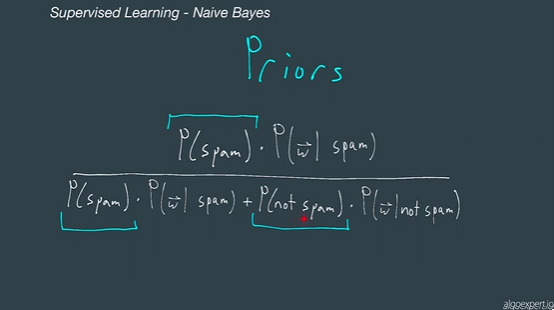 Supervised Learning - Naive Bayes
Priors
P(spam) · P(w⃗ | spam)
P(spam) · P(w⃗ | spam) + P(not spam) · P(w⃗ | not spam)
algoexpert.io